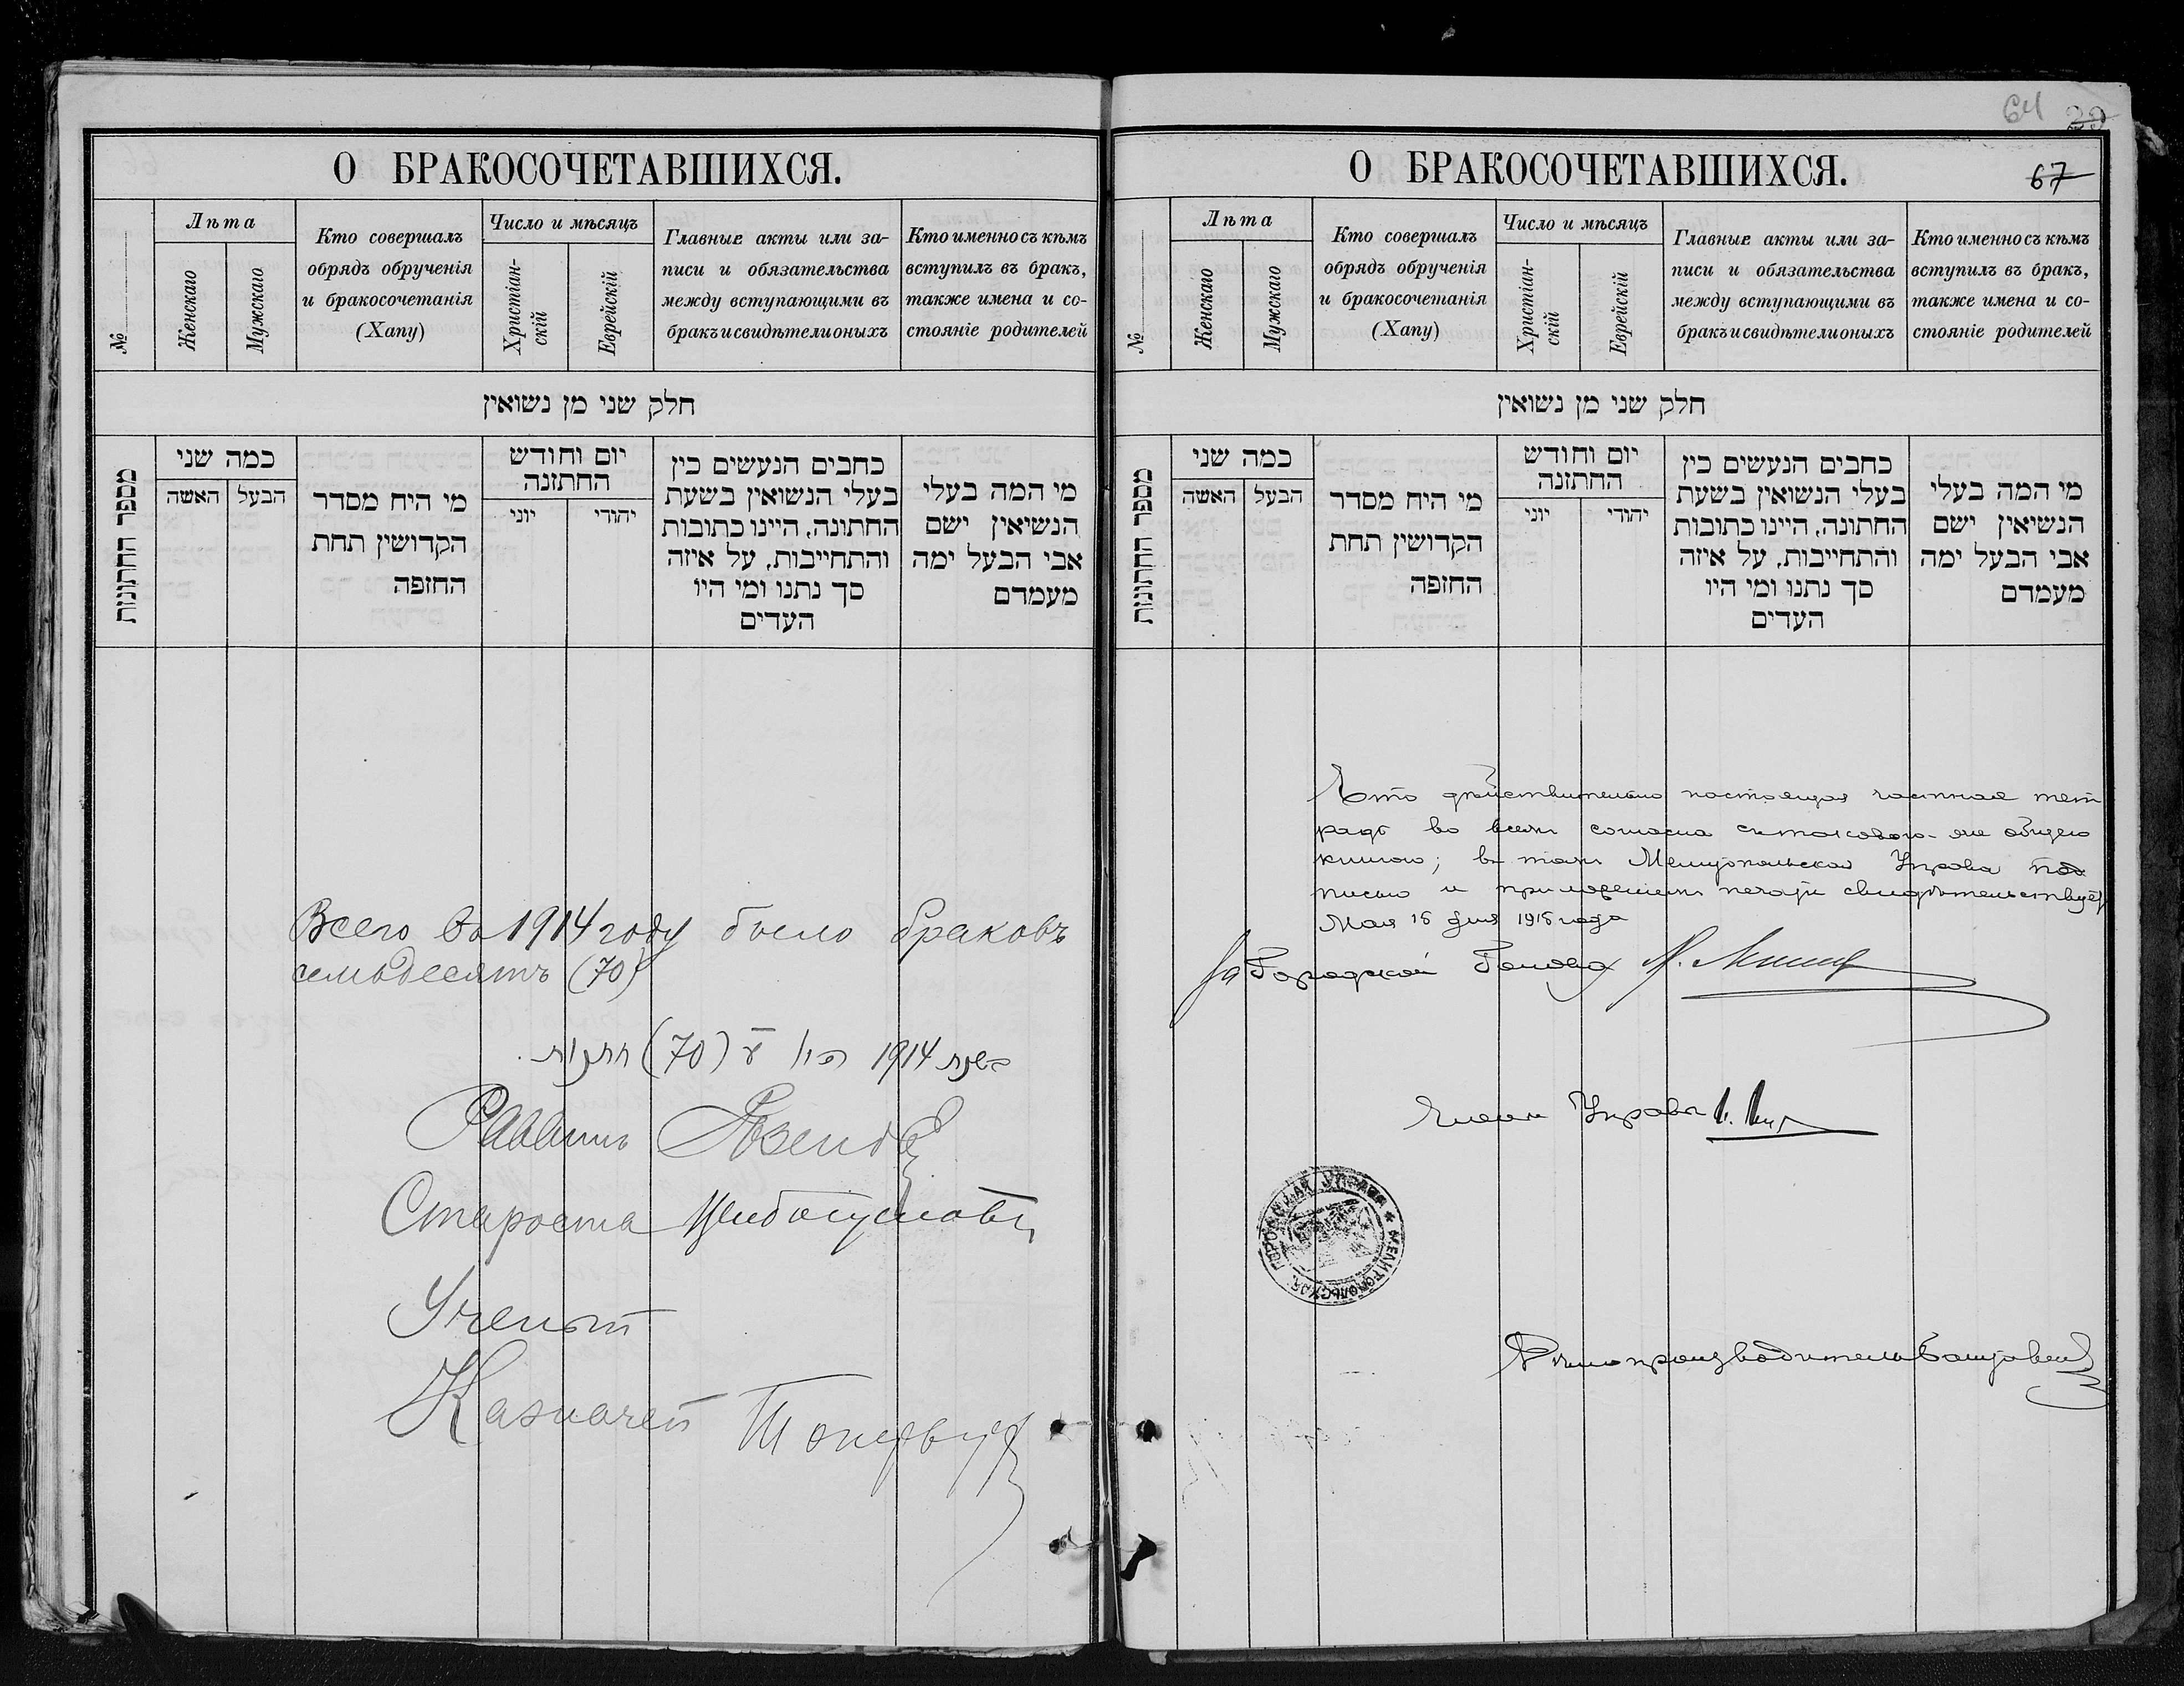 О БРАКОСОЧЕТАВШИХСЯ.
№
Лѣта
Женскаго
Мужскаго
Кто совершалъ
обрядъ обрученія
и бракосочетанія
(Хапу)
Число и мѣсяцъ
Христіан-
скій
Еврейскій
Главные акты или за-
писи и обязательства
между вступающими въ
бракъ и свидѣтели оныхъ
Кто именно съ кѣмъ
вступилъ въ бракъ,
также имена и со-
стояніе родителей
חלק שני מן נשואין
מספר החתונות
כמה שני
האשה
הבעל
מי היח מסדר
הקדושין תחת
החופה
יום וחודש
החתונה
יוני
יהודי
כחבים הנעשים כין
בעלי הנשואין בשעת
החתונה, היינו כתובות
והתחייבות, על איזה
סך נתנו ומי היו
העדים
מי המה בעלי
הנשיאין ישם
אבי הבעל ימה
מעמדם
Всего въ 1914 году было браковъ
семьдесятъ (70)
בשנת 1914 היו ע (70) חתונות.
Раввинъ
Староста
Ученый
Казначей
64
67
О БРАКОСОЧЕТАВШИХСЯ.
№
Лѣта
Женскаго
Мужскаго
Кто совершалъ
обрядъ обрученія
и бракосочетанія
(Хапу)
Число и мѣсяцъ
Христіан-
скій
Еврейскій
Главные акты или за-
писи и обязательства
между вступающими въ
бракъ и свидѣтели оныхъ
Кто именно съ кѣмъ
вступилъ въ бракъ,
также имена и со-
стояніе родителей
חלק שני מן נשואין
מספר החתונות
כמה שני
האשה
הבעל
מי היח מסדר
הקדושין תחת
החופה
יום וחודש
החתונה
יוני
יהודי
כחבים הנעשים כין
בעלי הנשואין בשעת
החתונה, היינו כתובות
והתחייבות, על איזה
סך נתנו ומי היו
העדים
מי המה בעלי
הנשיאין ישם
אבי הבעל ימה
מעמדם
Что дѣйствительно настоящая частная тет
радь во всемъ согласна съ таковою-же общею
книгою; въ томъ Мелитопольская Управа под
писью и приложеніемъ печати свидѣтельствуетъ
Мая 15 дня 1915 года
За Городской Голова
Членъ Управы
МЕЛИТОПОЛЬСКАЯ ГОРОДСКАЯ УПРАВА
Дѣлопроизводитель